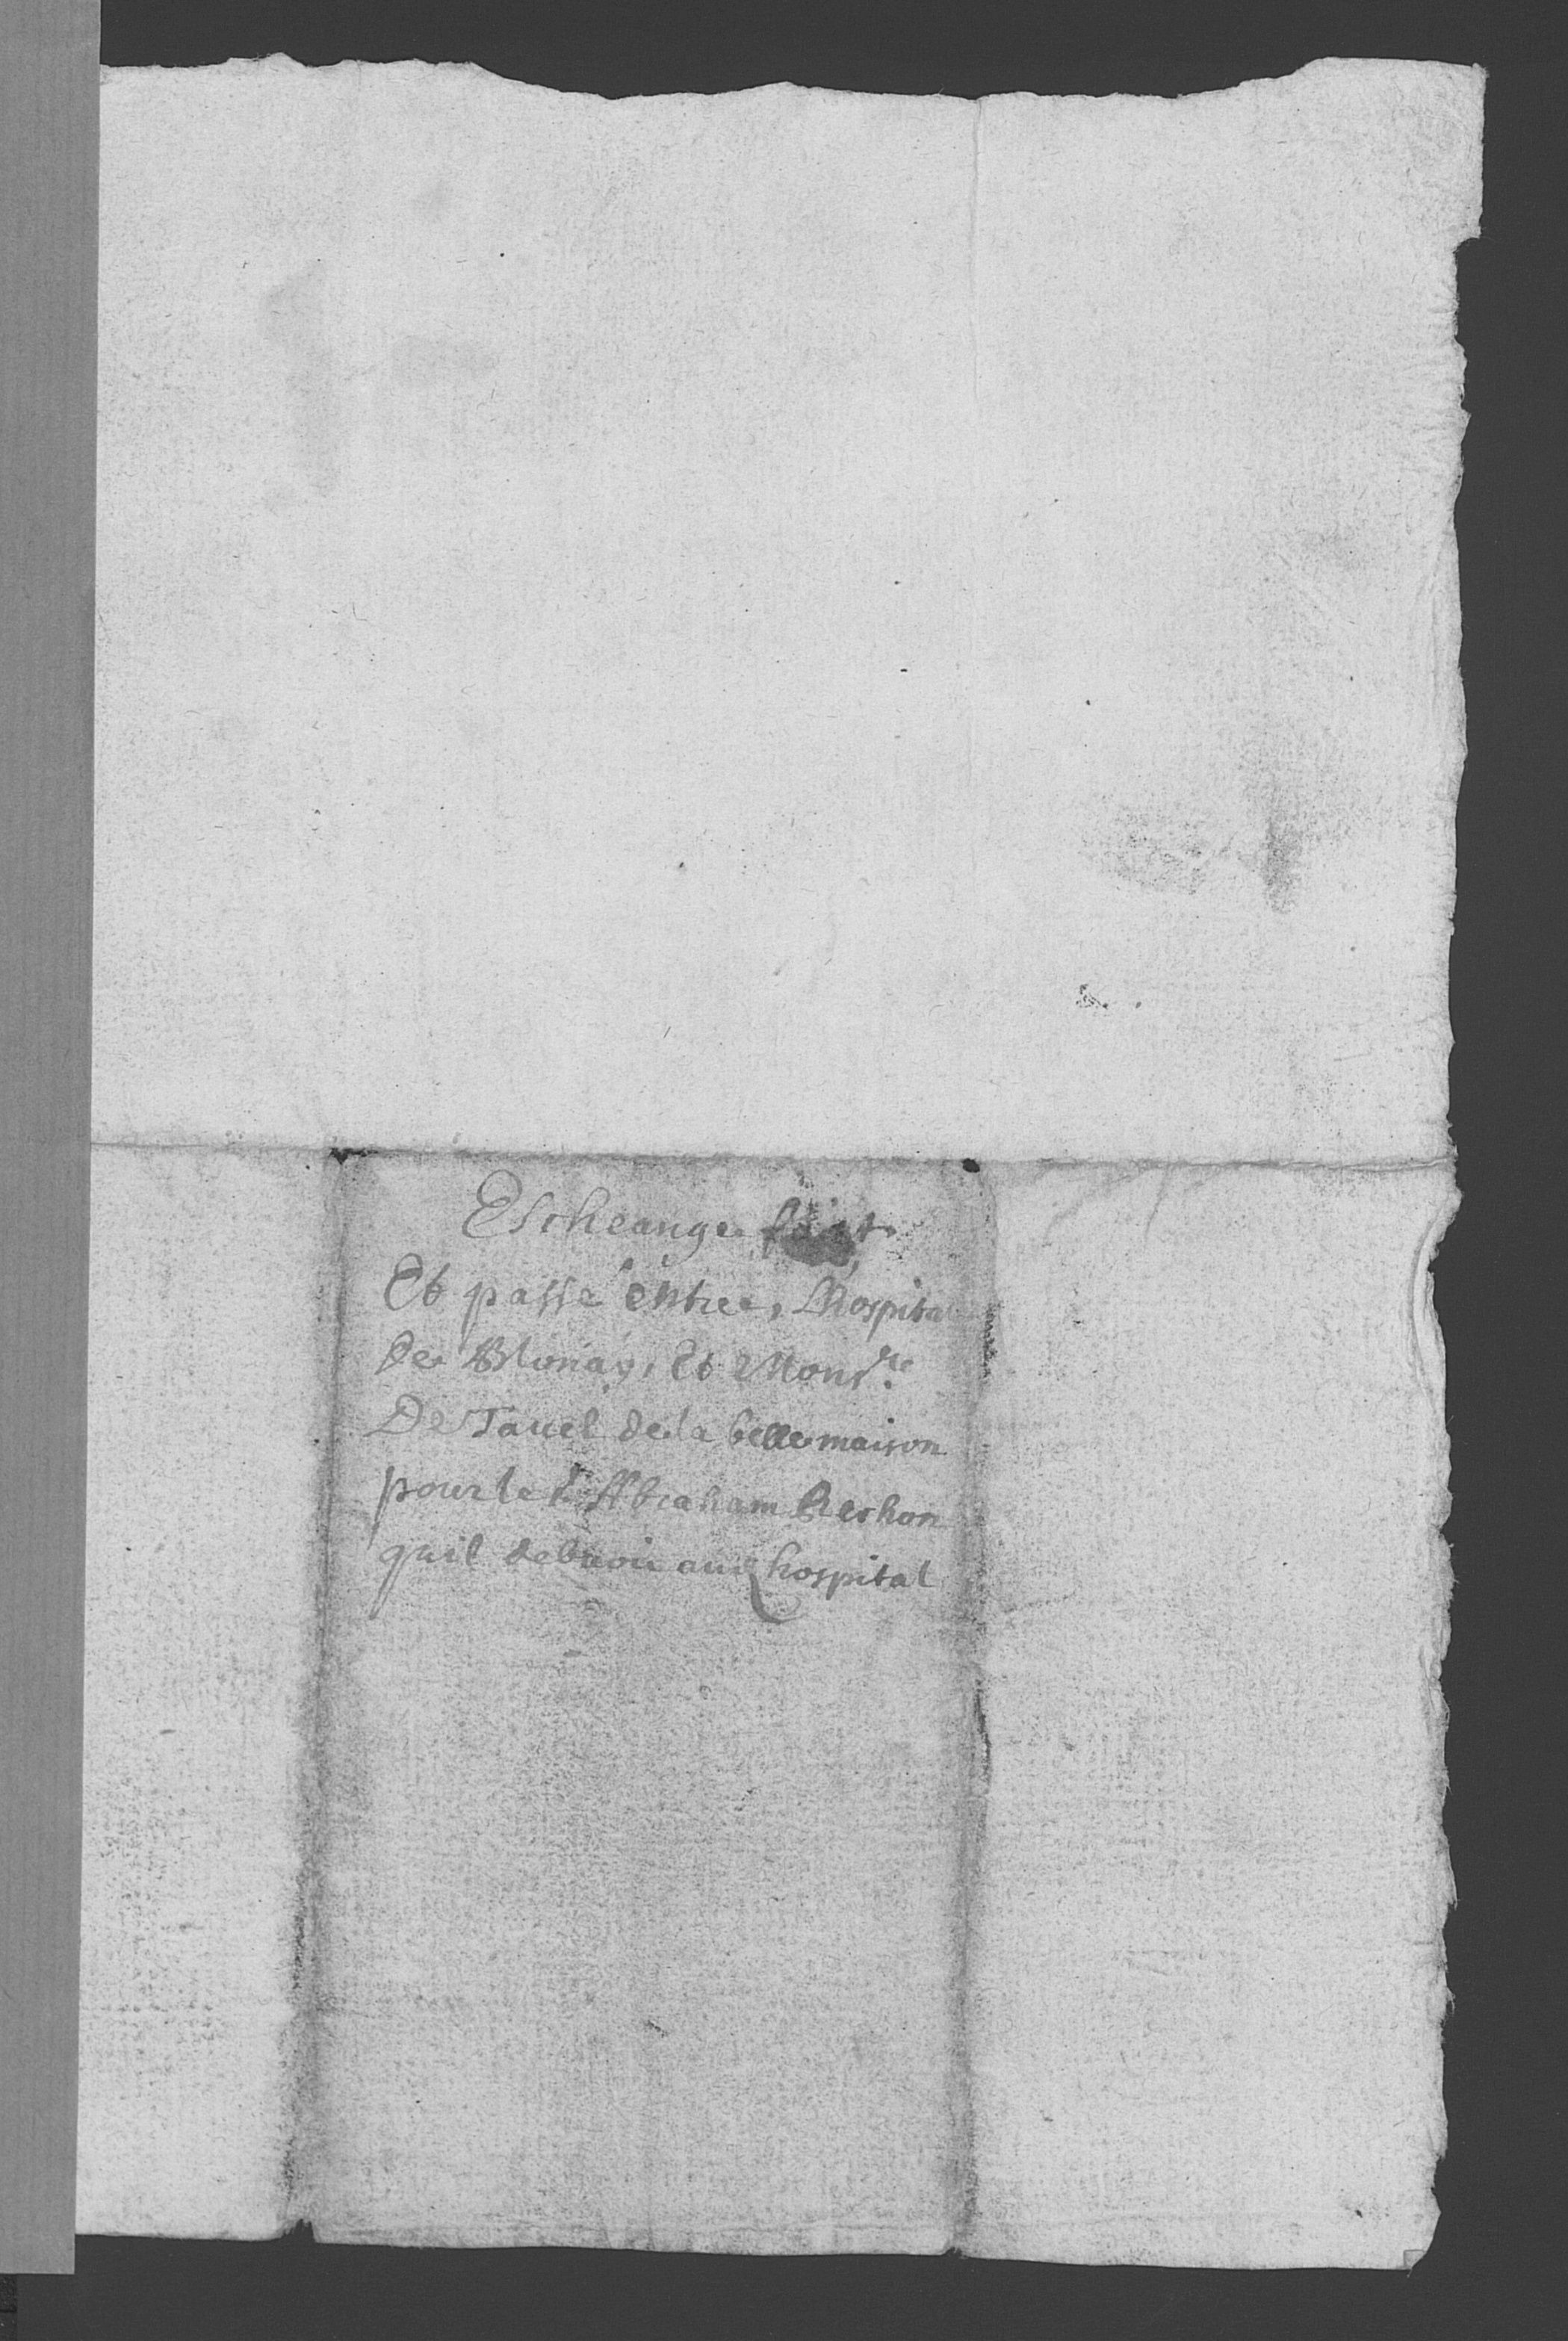 Escheange faict
Et passé entree, Lhospital
De Blonay, Et Monsr.
De Tauel de la belle maison
pour le Sr. Abraham Bechon
quil debuoir aud hospital